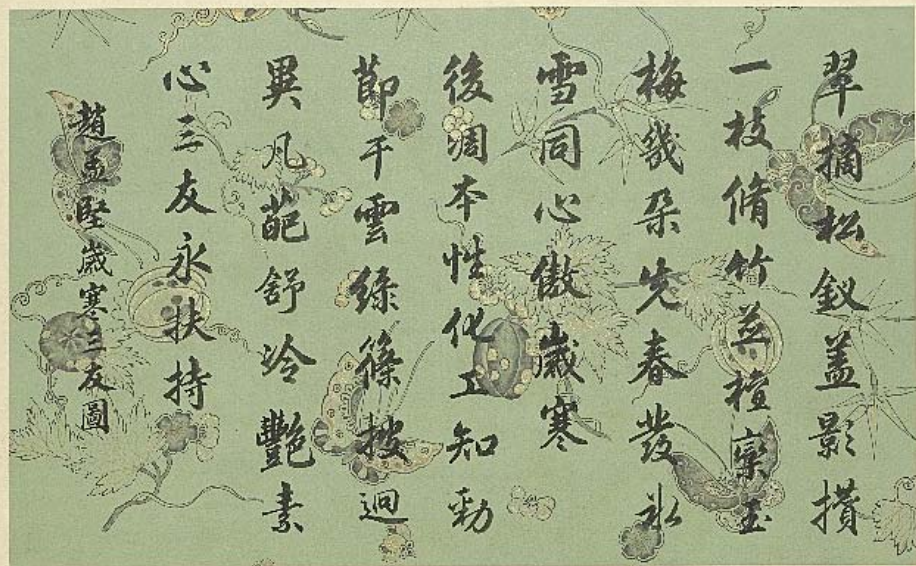 翠摘松釵盖影攢
一枝脩竹並檀欒玉
梅幾朶先春發氷
雪同心傲歲寒
後凋本性化工知勁
節干雲綠篠披迥
異凡葩舒冷豔素
心三友永扶持
趙孟堅歲寒三友圖